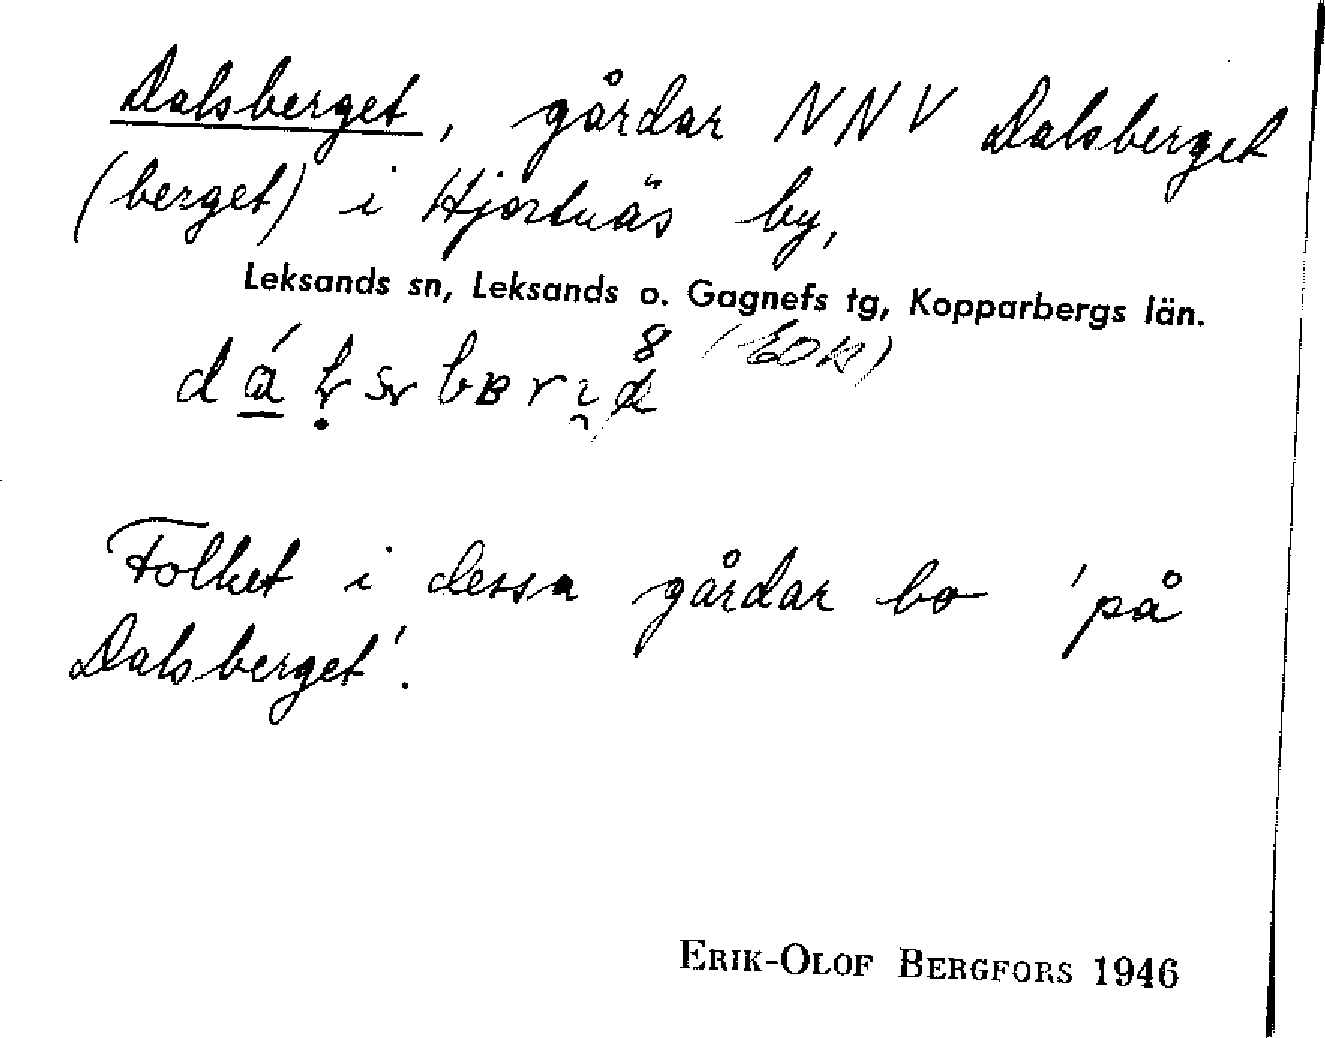 Dalsberget, gårdar NNV Dalsberget
(berget) i Hjortnäs by,
Leksands sn, Leksands o. Gagnefs tg, Kopparbergs län.
Folket i dessa gårdar bo 'på
Dalsberget'.
ERIK-OLOF BERGFORS 1946